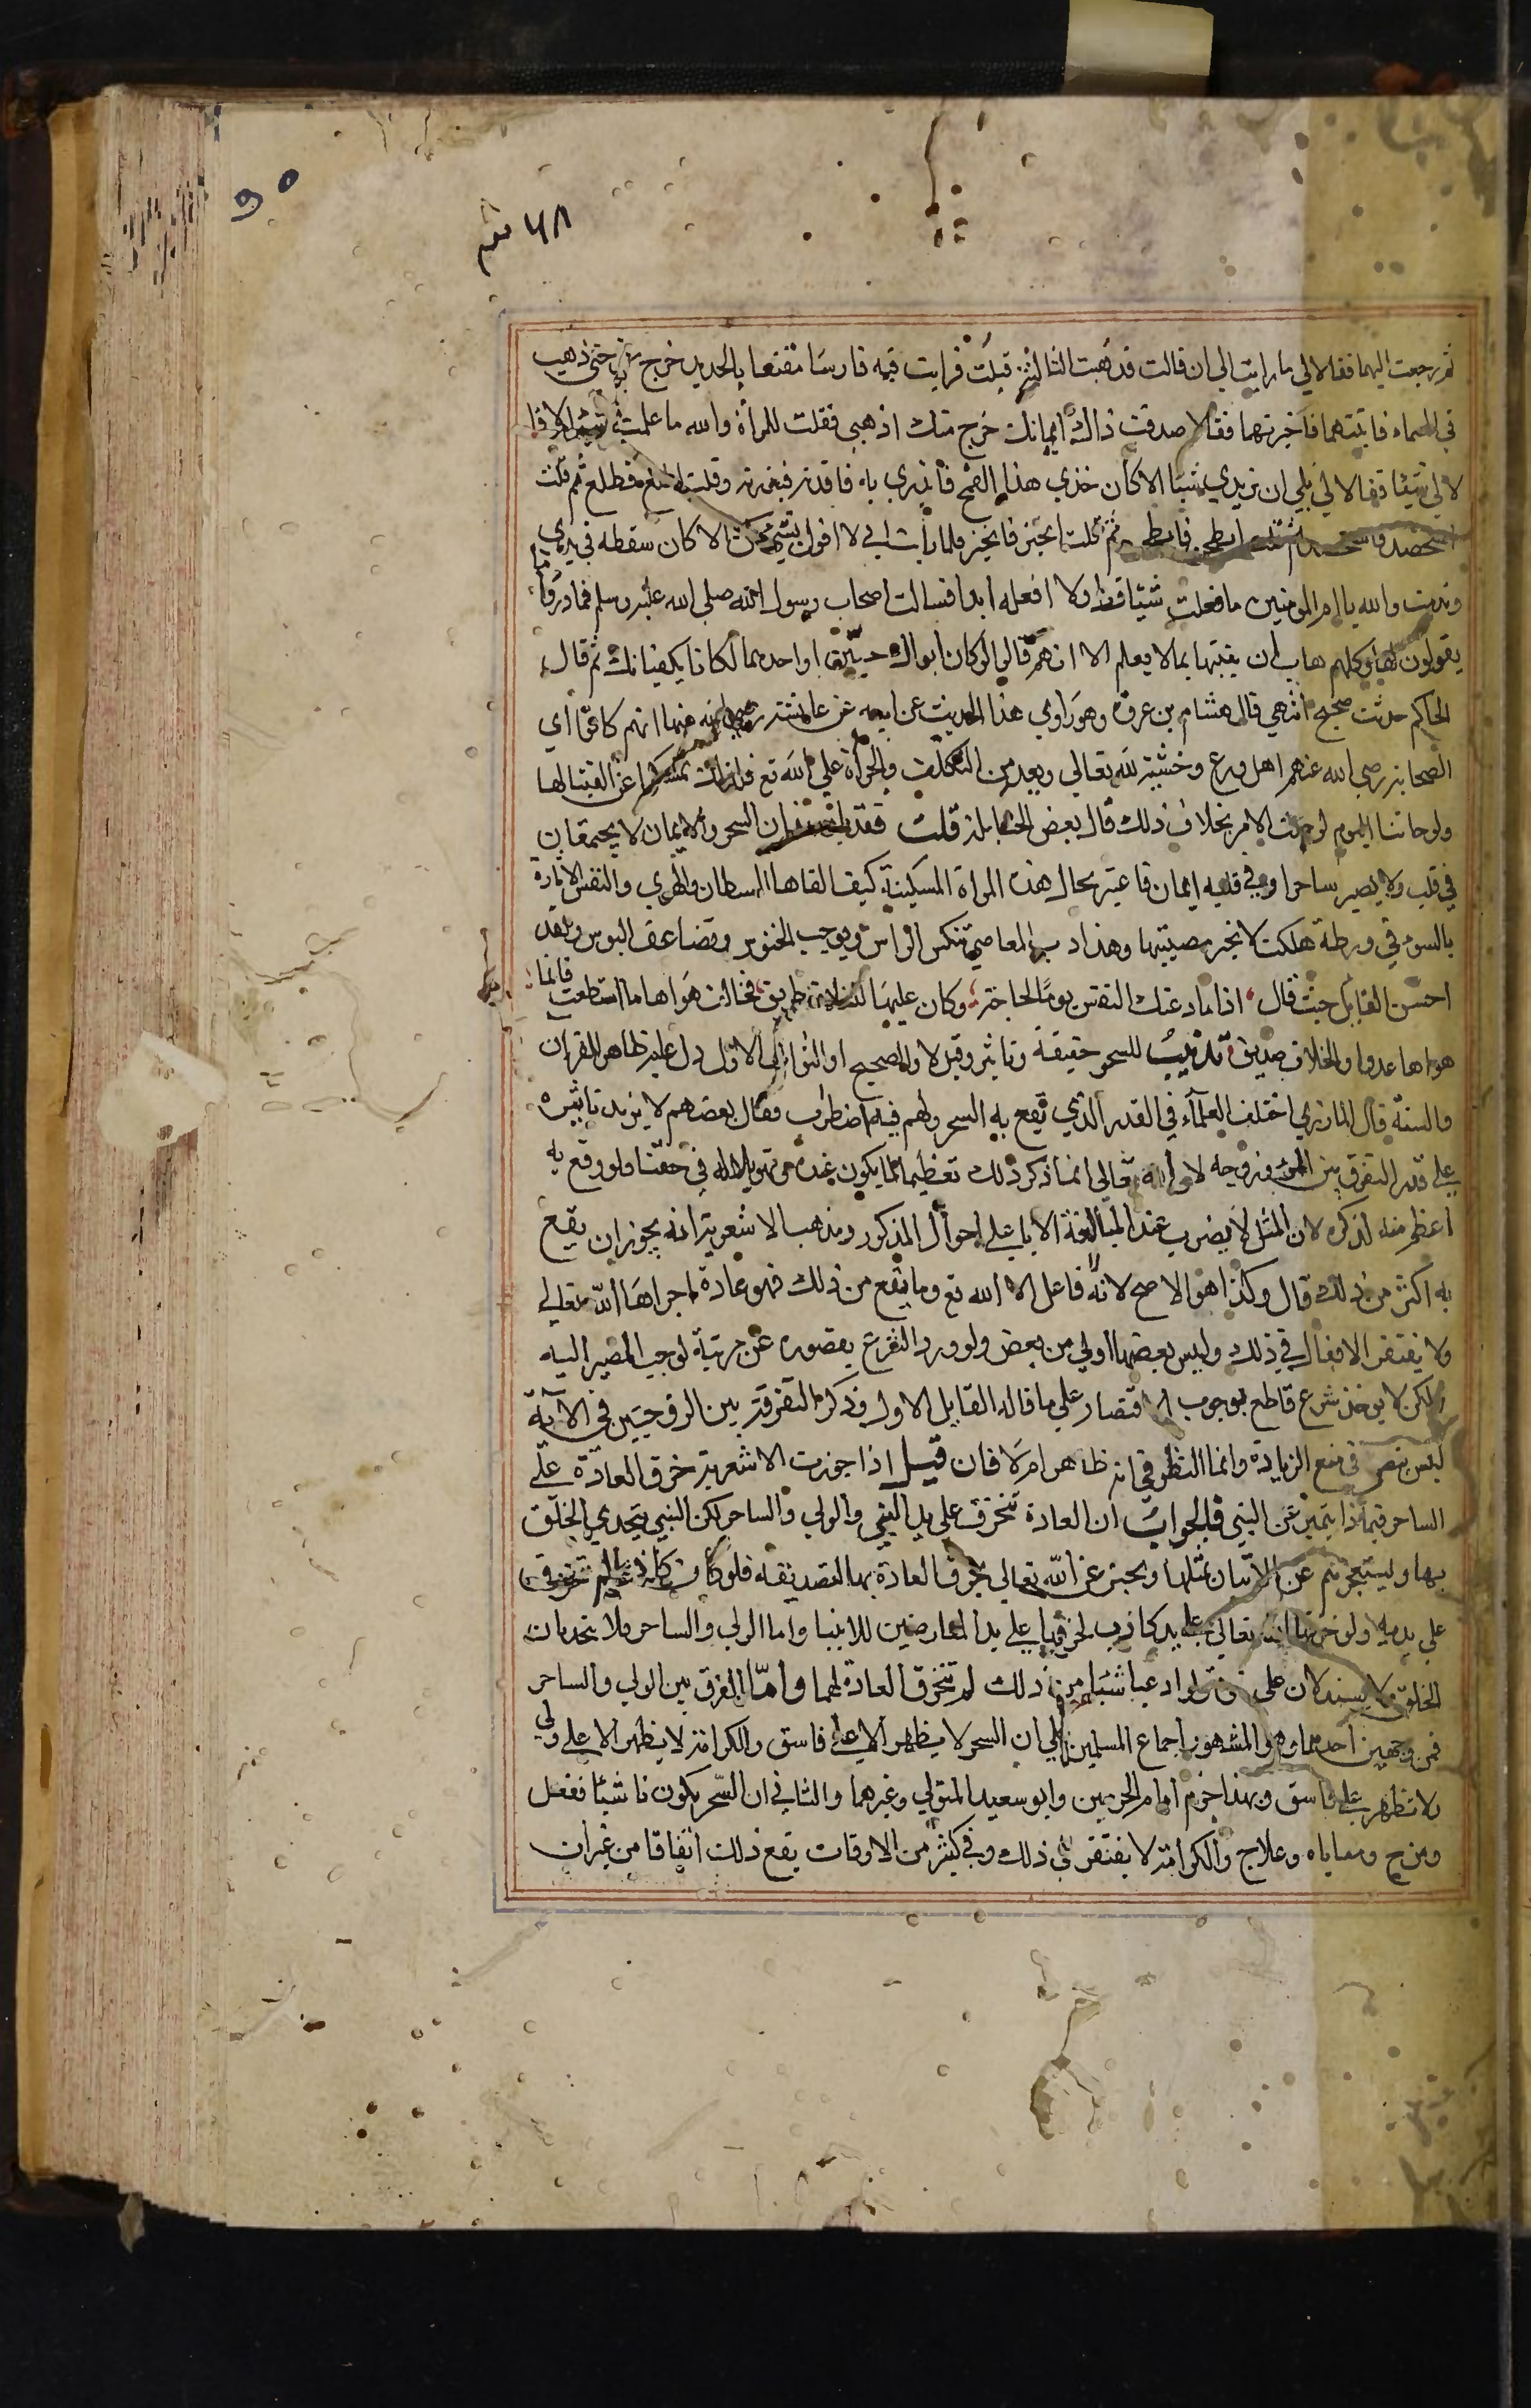 ٩٥
ثم رجعت اليهما فقالا لي ما رايت الي ان قالت فذهبت الثالثة فبلت فرايت فيه فارسا مقنعا بالحديد خرج مني حتى ذهب
في السماء فاتيتهما فاخبرتهما فقالا صدقت ذلك ايمانك خرج منك اذهبي فقلت للمراة والله ما علمت شيئا ولا قالا
لا لي شيئا فقالا لي بلي ان تريدي شيئا الا كان خذي هذا القمح فابذري به فاخذته فبذرته وقلت اطلع فطلع ثم قلت
استحصد فاستحصد ثم قلت اطحن فاطحن ثم قلت اخبز فانخبز فلما رايت اني لا اقول لشيء كن الا كان سقط في يدي
وندمت والله يا ام المومنين ما فعلت شيئا قط ولا افعله ابدا فسالت اصحاب رسول الله صلى الله عليه وسلم فما دروا ما
يقولون لها وكلهم هاب ان يفتيها بما لا يعلم الا انهم قالوا لو كان ابواك حيين او احدهما لكانا يكفيانك ثم قال
الحاكم حديث صحيح انتهي قال هشام بن عروة وهو راوي هذا الحديث عن ابيه عن عائشة رضي الله عنها انهم كانوا اي
الصحابة رضي الله عنهم اهل ورع وخشية لله تعالى وبعد من التكلف والجراة علي الله تع فلذلك عن الفتيا لها
ولو جاءتنا اليوم لوجدت الامر بخلاف ذلك قال بعض الحنابلة قلت فقد فان السحر والايمان لا يجتمعان
في قلب ولا يصير ساحرا وفي قلبه ايمان فاعتبر بحال هذه المراة المسكينة كيف القاها الشيطان والهوي والنفس الامارة
بالسوء في ورطة هلكت لا تجبر مصيبتها وهذا دب المعاصي تنكس الراس ويوجب الحنوس وتضاعف البوس ولقد
احسن القايل حيث قال اذا ما دعتك النفس يوما لحاجة وكان عليها للخلاف طريق فخالف هواها ما استطعت فانما
هواها عدو والخلاف صديق تذنيب للسحر حقيقة وتاثير وقيل لا والصحيح الاول دل عليه ظاهر القران
والسنة قال المازري اختلف العلماء في القدر الذي يقع به السحر ولهم فيه اضطراب فقال بعضهم لا يزيد تاثيره
علي قدر التفرق بين المرء وزوجه لان الله تعالى انما ذكر ذلك تعظيما لما يكون عنده وتهويلا له في حقنا ولو وقع به
اعظم منه لذكره لان المثل لا يضرب عند المبالغة الا باعلي احوال المذكور ومذهب الاشعرية انه يجوز ان يقع
به اكثر من ذلك قال وكذا هو الاصح لانه لا فاعل الا الله تع وما يقع من ذلك فهو عادة اجراها الله تعالى
ولا يفتقر الافعال في ذلك وليس بعضها اولي من بعض ولو ورد الشرع بقصوره عن مرتبة لوجب المصير اليه
لكن لا يوخذ شرع قاطع بوجوب الاقتصار علي ما قاله القايل الاول وذكر التفرقة بين الزوجين في الآية
ليس بنص في منع الزيادة وانما النظر في انه ظاهر ام لا فان قيل اذا جوزت الاشعرية خرق العادة علي
الساحر فبماذا يتميز عن النبي فالجواب ان العادة تنخرق علي يد النبي والولي والساحر لكن النبي يتحدي الخلق
بها ويستعجزهم عن الاتيان بمثلها ويخبر عن الله تعالى بخرق العادة بها لتصديقه فلو كان كاذبا لم تنخرق
علي يديه ولو خرقها الله تعالى علي يد كاذب لخرقها علي يد المعارضين للانبيا واما الولي والساحر فلا يتحديان
الخلق ولا يستدلان علي نبوة ولو ادعيا شيئا من ذلك لم تنخرق العادة لهما واما الفرق بين الولي والساحر
فمن وجهين احدهما وهو المشهور اجماع المسلمين علي ان السحر لا يظهر الا علي فاسق والكرامة لا يظهر الا علي ولي
ولا تظهر علي فاسق وبهذا جزم امام الحرمين وابو سعيد المتولي وغيرهما والثاني ان السحر يكون ناشيا ففعل
ومزج ومعاياه وعلاج والكرامة لا يفتقر الى ذلك وفي كثير من الاوقات يقع ذلك اتفاقا من غير ان